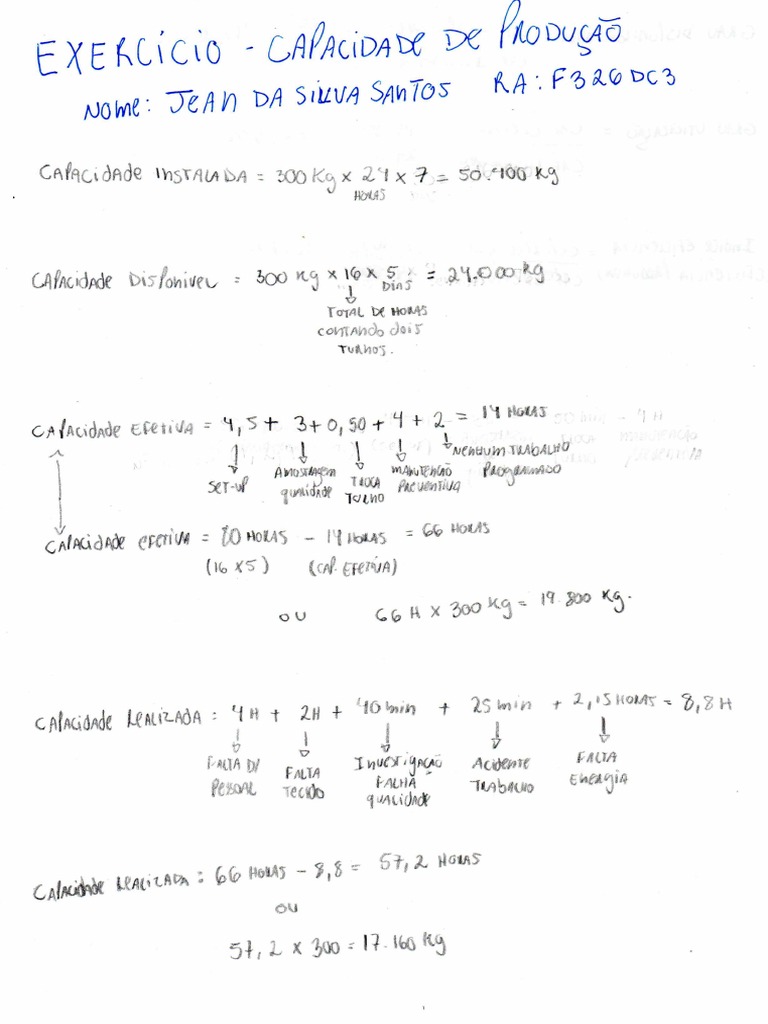 EXERCÍCIO - CAPACIDADE DE PRODUÇÃO
NOME: JEAN DA SILVA SANTOS RA: F326DC3
CAPACIDADE INSTALADA = 300 Kg x 24 x 7 = 50.400 Kg
HORAS
CAPACIDADE DISPONIVEL = 300 Kg x 16 x 5 = 24.000 Kg
DIAS
TOTAL DE HORAS
CONTANDO dois
TURNOS.
CAPACIDADE EFETIVA = 4,5 + 3 + 0,50 + 4 + 2 = 14 HORAS
SET-UP AMOSTRAGEM qualidade TROCA TURNO MANUTENÇÃO PREVENTIVA NENHUM TRABALHO PROGRAMADO
CAPACIDADE EFETIVA = 80 HORAS - 14 HORAS = 66 HORAS
(16 x 5) (CAP. EFETIVA)
OU 66 H x 300 Kg = 19.800 Kg.
CAPACIDADE REALIZADA = 4H + 2H + 40 min + 25 min + 2,15 HORAS = 8,8 H
FALTA D/ PESSOAL FALTA TECIDO INVESTIGAÇÃO FALHA qualidade Acidente TRABALHO FALTA Energia
CAPACIDADE REALIZADA = 66 HORAS - 8,8 = 57,2 HORAS
OU
57,2 x 300 = 17.160 Kg